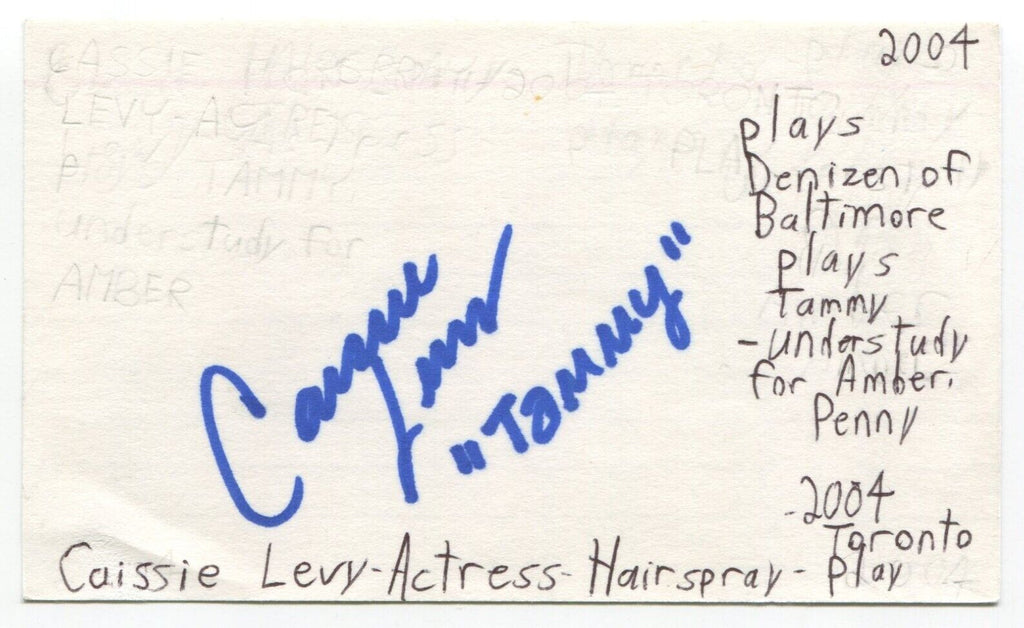 2004
plays
Denizen of
Baltimore
plays
Tammy
-understudy
for Amber.
Penny
-2004
Toronto
Play
Caissie Levy-Actress-Hairspray-
Caissie
Levy
"Tammy"
CASSIE HAIRSPRAY
LEVY-ACTRESS
PLAYS TAMMY
understudy for
AMBER